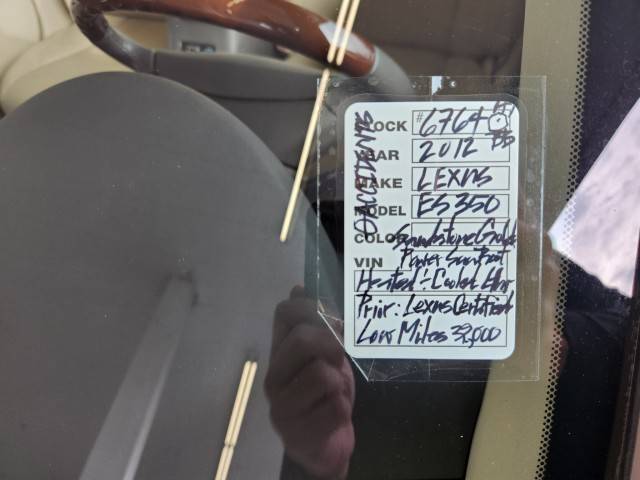 STOCK #6764
YEAR 2012
MAKE LEXUS
MODEL ES350
COLOR Sandstone Gold
VIN Power Sunroof
Heated + Cooled
Prior: Lexus Certified
Low Miles 39,000
0 ACCIDENTS